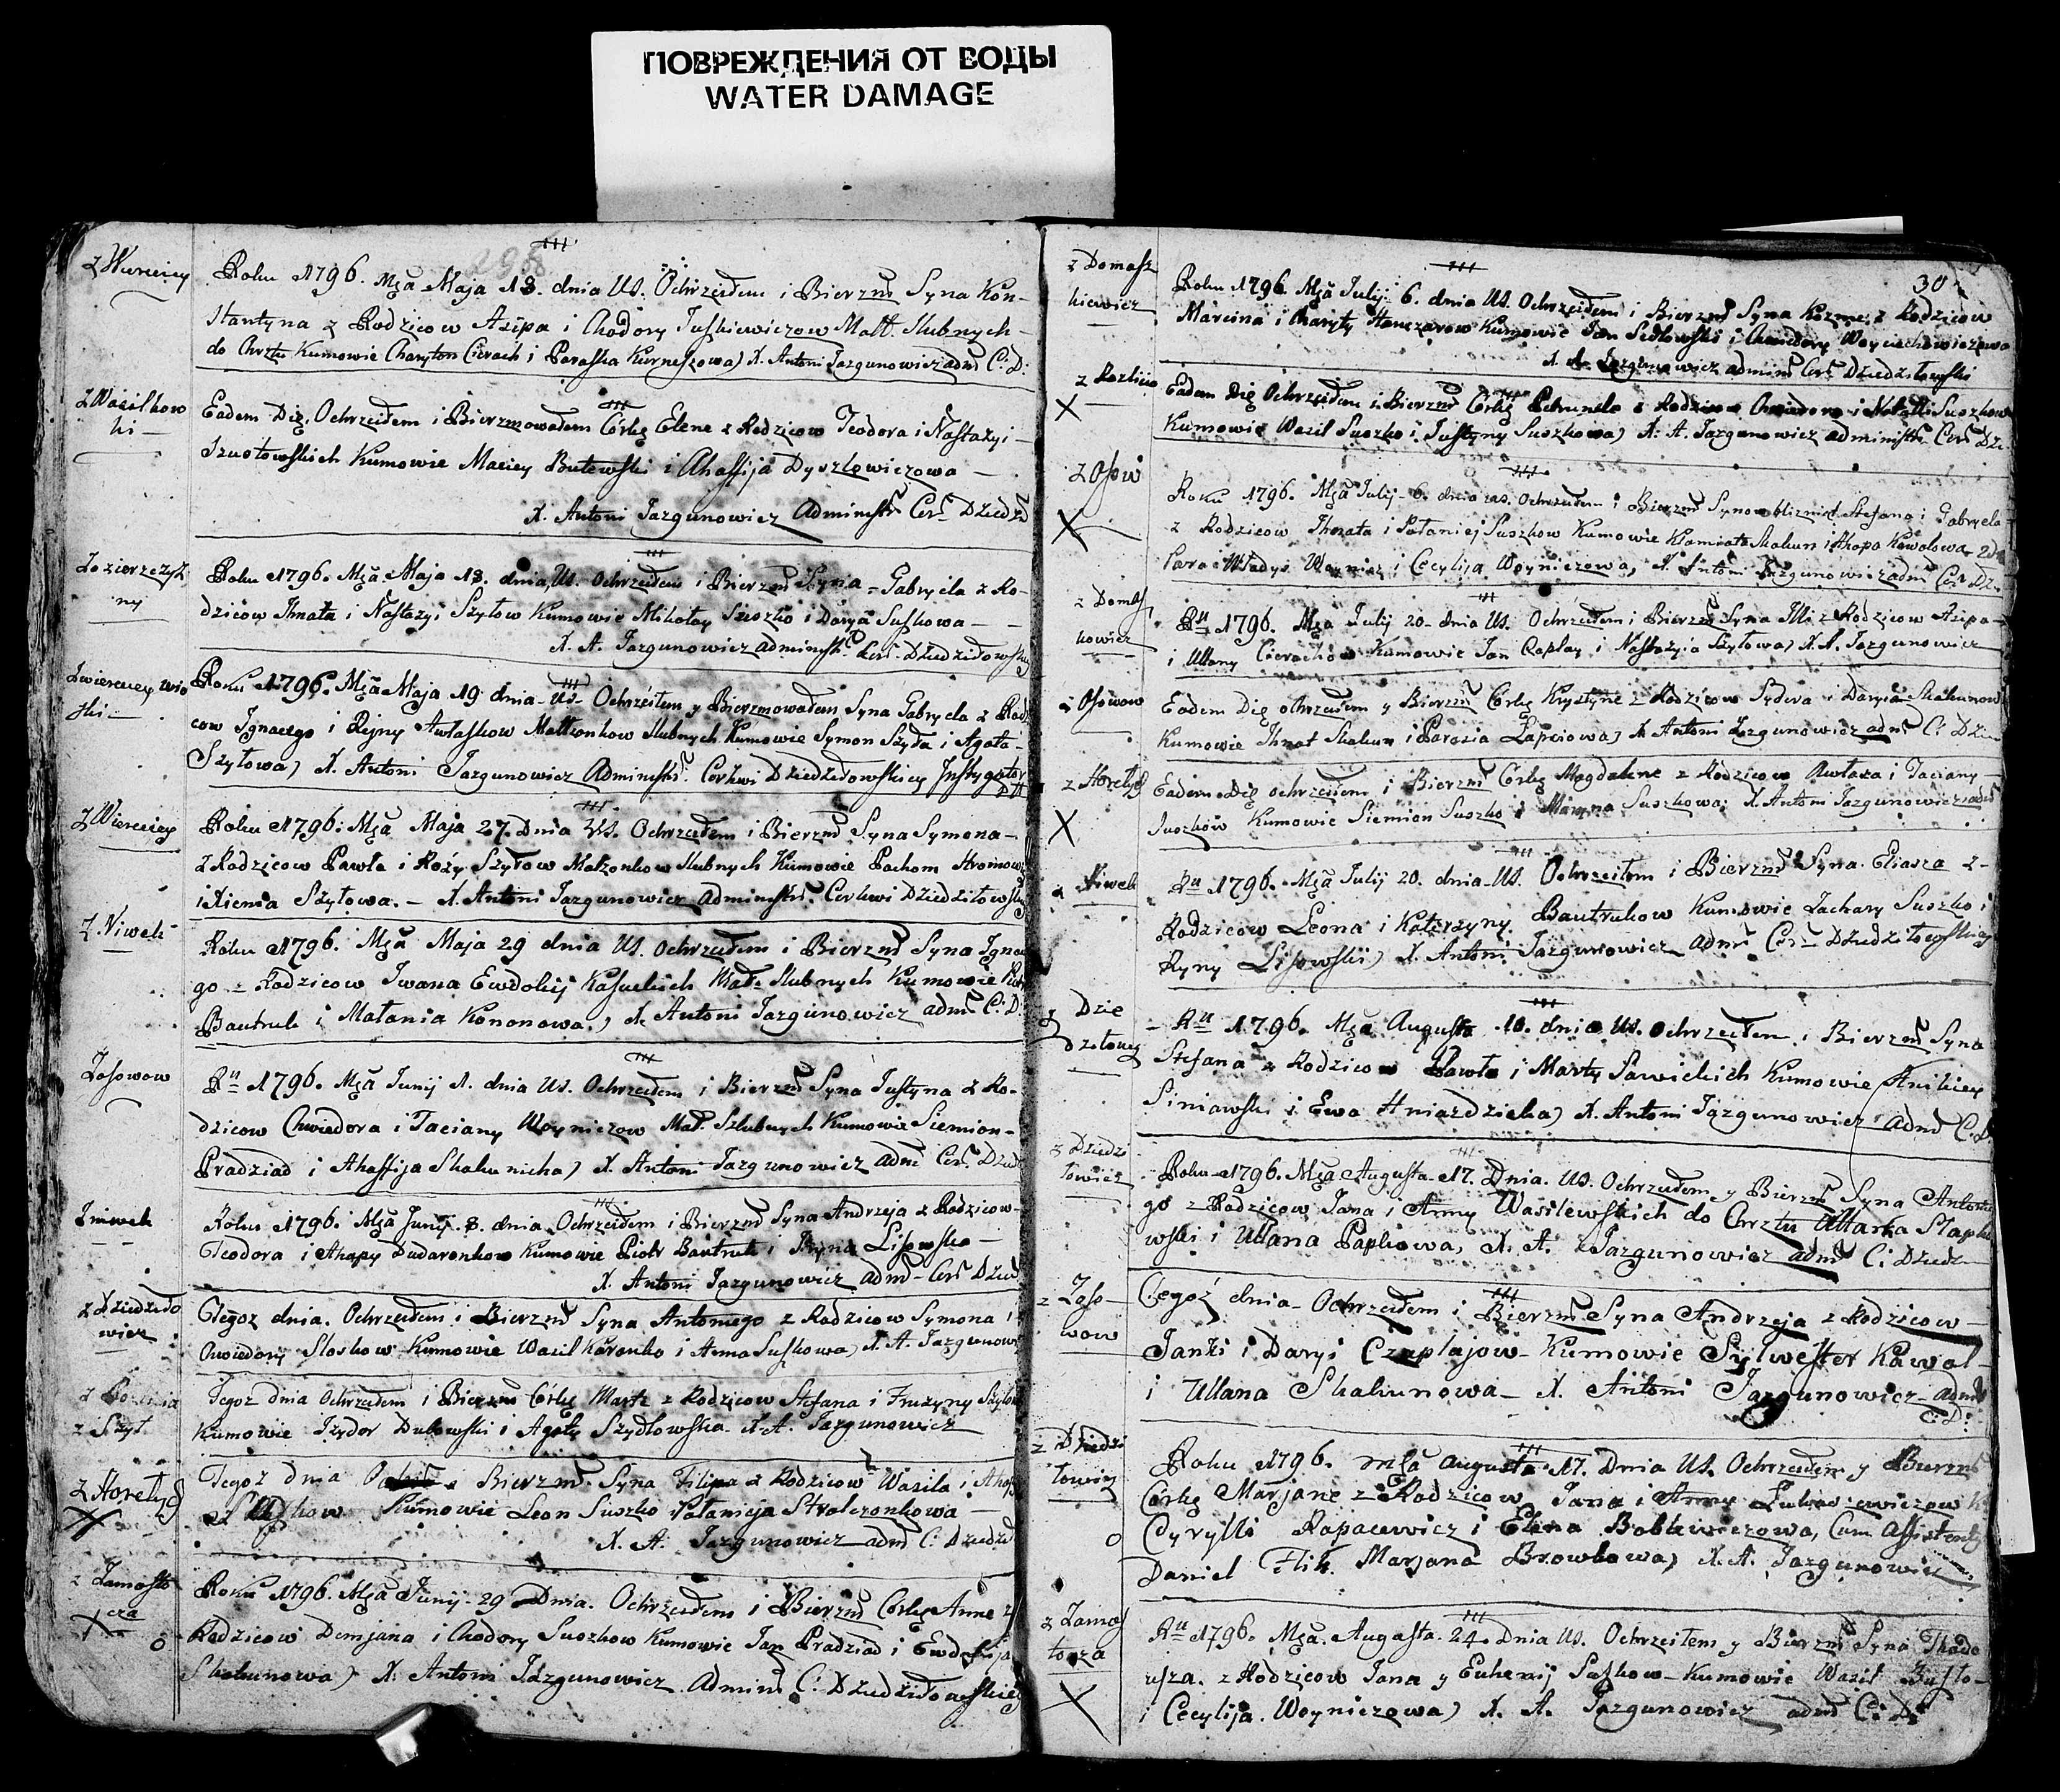 ПОВРЕЖДЕНИЯ ОТ ВОДЫ
WATER DAMAGE
Roku 1796. Mça Maja 18. dnia Us. Ochrzciłem i Bierzm Syna Kon-
stantyna z Rodzicow Asipa i Chodory Juskiewiczow Małż. slubnych
do Chrztu Kumowie Charyton Cierach i Paraska X. Antoni Jazgunowicz adm C: D:
z Wasilkow
ki
Eadem Die, Ochrzciłem i Bierzmowałem Corkę Elenę z Rodzicow Teodora i Nastazyi
Kumowie Maciey Butewski i Ahafija Dyszlewiczowa
X. Antoni Jazgunowicz Administr Cer Dziedz
Roku 1796. Mça Maja 18. dnia, Us. Ochrzciłem i Bierzm Syna Gabryela z Ro-
dzicow Ihnata i Nastazyi Szyłow Kumowie Mikołay Suszko i Darya Suszkowa
X. A. Jazgunowicz administr. Cer. Dziedziłowskiey
Roku 1796. Mça Maja 19 dnia Us. Ochrzciłem y Bierzmowałem Syna Gabryela z Rodz
cow Ignacego i Rejny Awłaskow Małżonkow slubnych Kumowie Symon Szyła i Agata
Szyłowa) X. Antoni Jazgunowicz Administr. Cerkwi Dziedziłowskiey
z Wierciey
Roku 1796. Mça Maja 27. Dnia Us. Ochrzciłem i Bierzm Syna Symona
z Rodzicow Pawła i Roży Szyłow Małzonkow slubnych Kumowie Pachom
i Xienia Szyłowa. X. Antoni Jazgunowicz Administr. Cerkwi Dziedziłowskiey
z Niwek
Roku 1796. Mça Maja 29 dnia Us. Ochrzciłem i Bierzm Syna Ignac
go z Rodzicow Iwana Ewdokij Mał. slubnych Kumowie
Bautruk i Małania Kononowa.) X. Antoni Jazgunowicz adm C: D:
Zosowow
Ru 1796. Mça Junij 1. dnia Us. Ochrzciłem i Bierzm Syna Justyna z Ro-
dzicow Chwiedora i Taciany Woyniczow Mał. Szlubnych Kumowie Siemion
Pradziad i Ahafija Skakunicha) X. Antoni Jazgunowicz adm Cer. Dzied
Zniwek
Roku 1796. Mça Junij. 8. dnia Ochrzciłem i Bierzm Syna Andrzeja z Rodzicow
Teodora i Ahapy Dudaronkow Kumowie Piotr Bautruk i Iryna Lisowska
X. Antoni Jazgunowicz adm Cer Dzied
z Dziedziło
wicz
Tegoz dnia. Ochrzciłem i Bierzm Syna Antoniego z Rodzicow Symona i
Chwiedory Kumowie Wasil Karanko i Anna Suszkowa) X. A. Jazgunow
z Szył
Tegoz dnia Ochrzciłem i Bierzm Corkę Martę z Rodzicow Stefana i Fruzyny Szyłow
Kumowie Izydor Dubowski i Agata Szydłowska X. A. Jazgunowicz
z Horełyc
X
Tegoż dnia Bierzm Syna Filipa z Rodzicow Wasila i Ahap
Kumowie Leon Suszko Pałanieja Stralczonkowa
X. A. Jazgunowicz adm C: Dziedz
z Zamosto
cza
X o
Roku 1796. Mça Junij 29 Dnia. Ochrzciłem i Bierzm Corkę Annę z
Rodzicow Demjana i Chodory Suszkow Kumowie Jan Pradziad i Ewdokija
Skakunowa) X. Antoni Jazgunowicz Admin C: Dziedziłowskiey
30
z Domasz
kiewicz
Roku 1796. Mça Julij 6. dnia Us. Ochrzciłem i Bierzm Syna Kozmę z Rodzicow
Marcina i Charyty Hanczarow Kumowie Jan i Chwiedora Woyciechowiczowa
X. A. Jazgunowicz admin Cer. Dziedziłowski
X
Eadem Die Ochrzciłem i Bierzm Corkę z Rodzicow Chwiedora i Natalli Suszkow
Kumowie Wasil Suszko i Justyna Suszkowa) X: A. Jazgunowicz administr. Cer Dzie
z Osow
X
Roku 1796. Mça Julij 6. dnia us. Ochrzciłem i Bierzm Synow bliznio Stefana i Gabryela
z Rodzicow Ihnata i Pałaniej Suszkow Kumowie Skakun i Ahapa Kowalowa 2da
Para Woynicz i Cecylija Woyniczowa, X. Antoni Jazgunowicz adm Cer Dz.
z Domasz
kowicz
Ru 1796. Mça Julij 20 dnia Us. Ochrzciłem i Bierzm Syna Illi z Rodzicow Asipa
i Ullany Cierachow Kumowie Jan i Nastazyia Szyłowa) X. A. Jazgunowicz
z Osowow
Eadem Die ochrzciłem y Bierzm Corkę Krystynę z Rodzicow Sydora i Daryi Skakunow
Kumowie Ihnat Skakun i Parasia Łapciowa) X Antoni Jazgunowicz adm C: Dzie
z Horełyc
X
Eadem Die ochrzciłem i Bierzm Corkę Magdalenę z Rodzicow Awłasa i Taciany
Suszkow Kumowie Siemion Suszko i Maryna Suszkowa. X. Antoni Jazgunowicz adm
z Niwek
Ru 1796. Mça Julij 20. dnia Us. Ochrzciłem i Bierzm Syna Eliasza z
Rodzicow Leona i Katerzyny Bautrukow Kumowie Zachary Suszko i
Ryny Lisowski) X. Antoni Jazgunowicz adm Cer Dziedziłowskiey
z Dzie
dziłowcz
Ru 1796. Mça Augusta 10. dnia Us. Ochrzciłem i Bierzm Syna
Stefana z Rodzicow Pawła i Marty Sawickich Kumowie Anikiey
Siniawski i Ewa Hniazdzicka) X. Antoni Jazgunowicz adm C. D.
z Dziedzi
łowicz
Roku 1796. Mça Augusta 17. Dnia. Us. Ochrzciłem y Bierzm Syna Antonie
go z Rodzicow Jana i Anny Wasilewskich do Chrztu
wski i Ullana Papkowa, X. A. Jazgunowicz adm C: Dziedz
z Zoso
wow
Tegoż dnia Ochrzciłem i Bierzm Syna Andrzeja z Rodzicow
Janki i Daryi Czaplajow Kumowie Sylwester Kawal
i Ullana Skakunowa X. Antoni Jazgunowicz adm
C: D:
z Dziedzi
łowicz
o
Roku 1796. mça Augusta 17. Dnia Us. Ochrzciłem y Bierzm
Corkę Marjanę z Rodzicow Jana i Anny
Cyrylli Rapacewicz i Elena Bobkiewiczowa, Cum Assistentj
Daniel Flik Marjana Browkowa) X. A. Jazgunowicz
z Zamos
tocza
X
Ru 1796. Mça. Augusta. 24. Dnia Us. Ochrzciłem y Bierzm Syna Thade
usza. z Rodzicow Jana y Euhenij Suszkow Kumowie Wasil
i Cecylija. Woyniczowa) X. A. Jazgunowicz adm C: D: